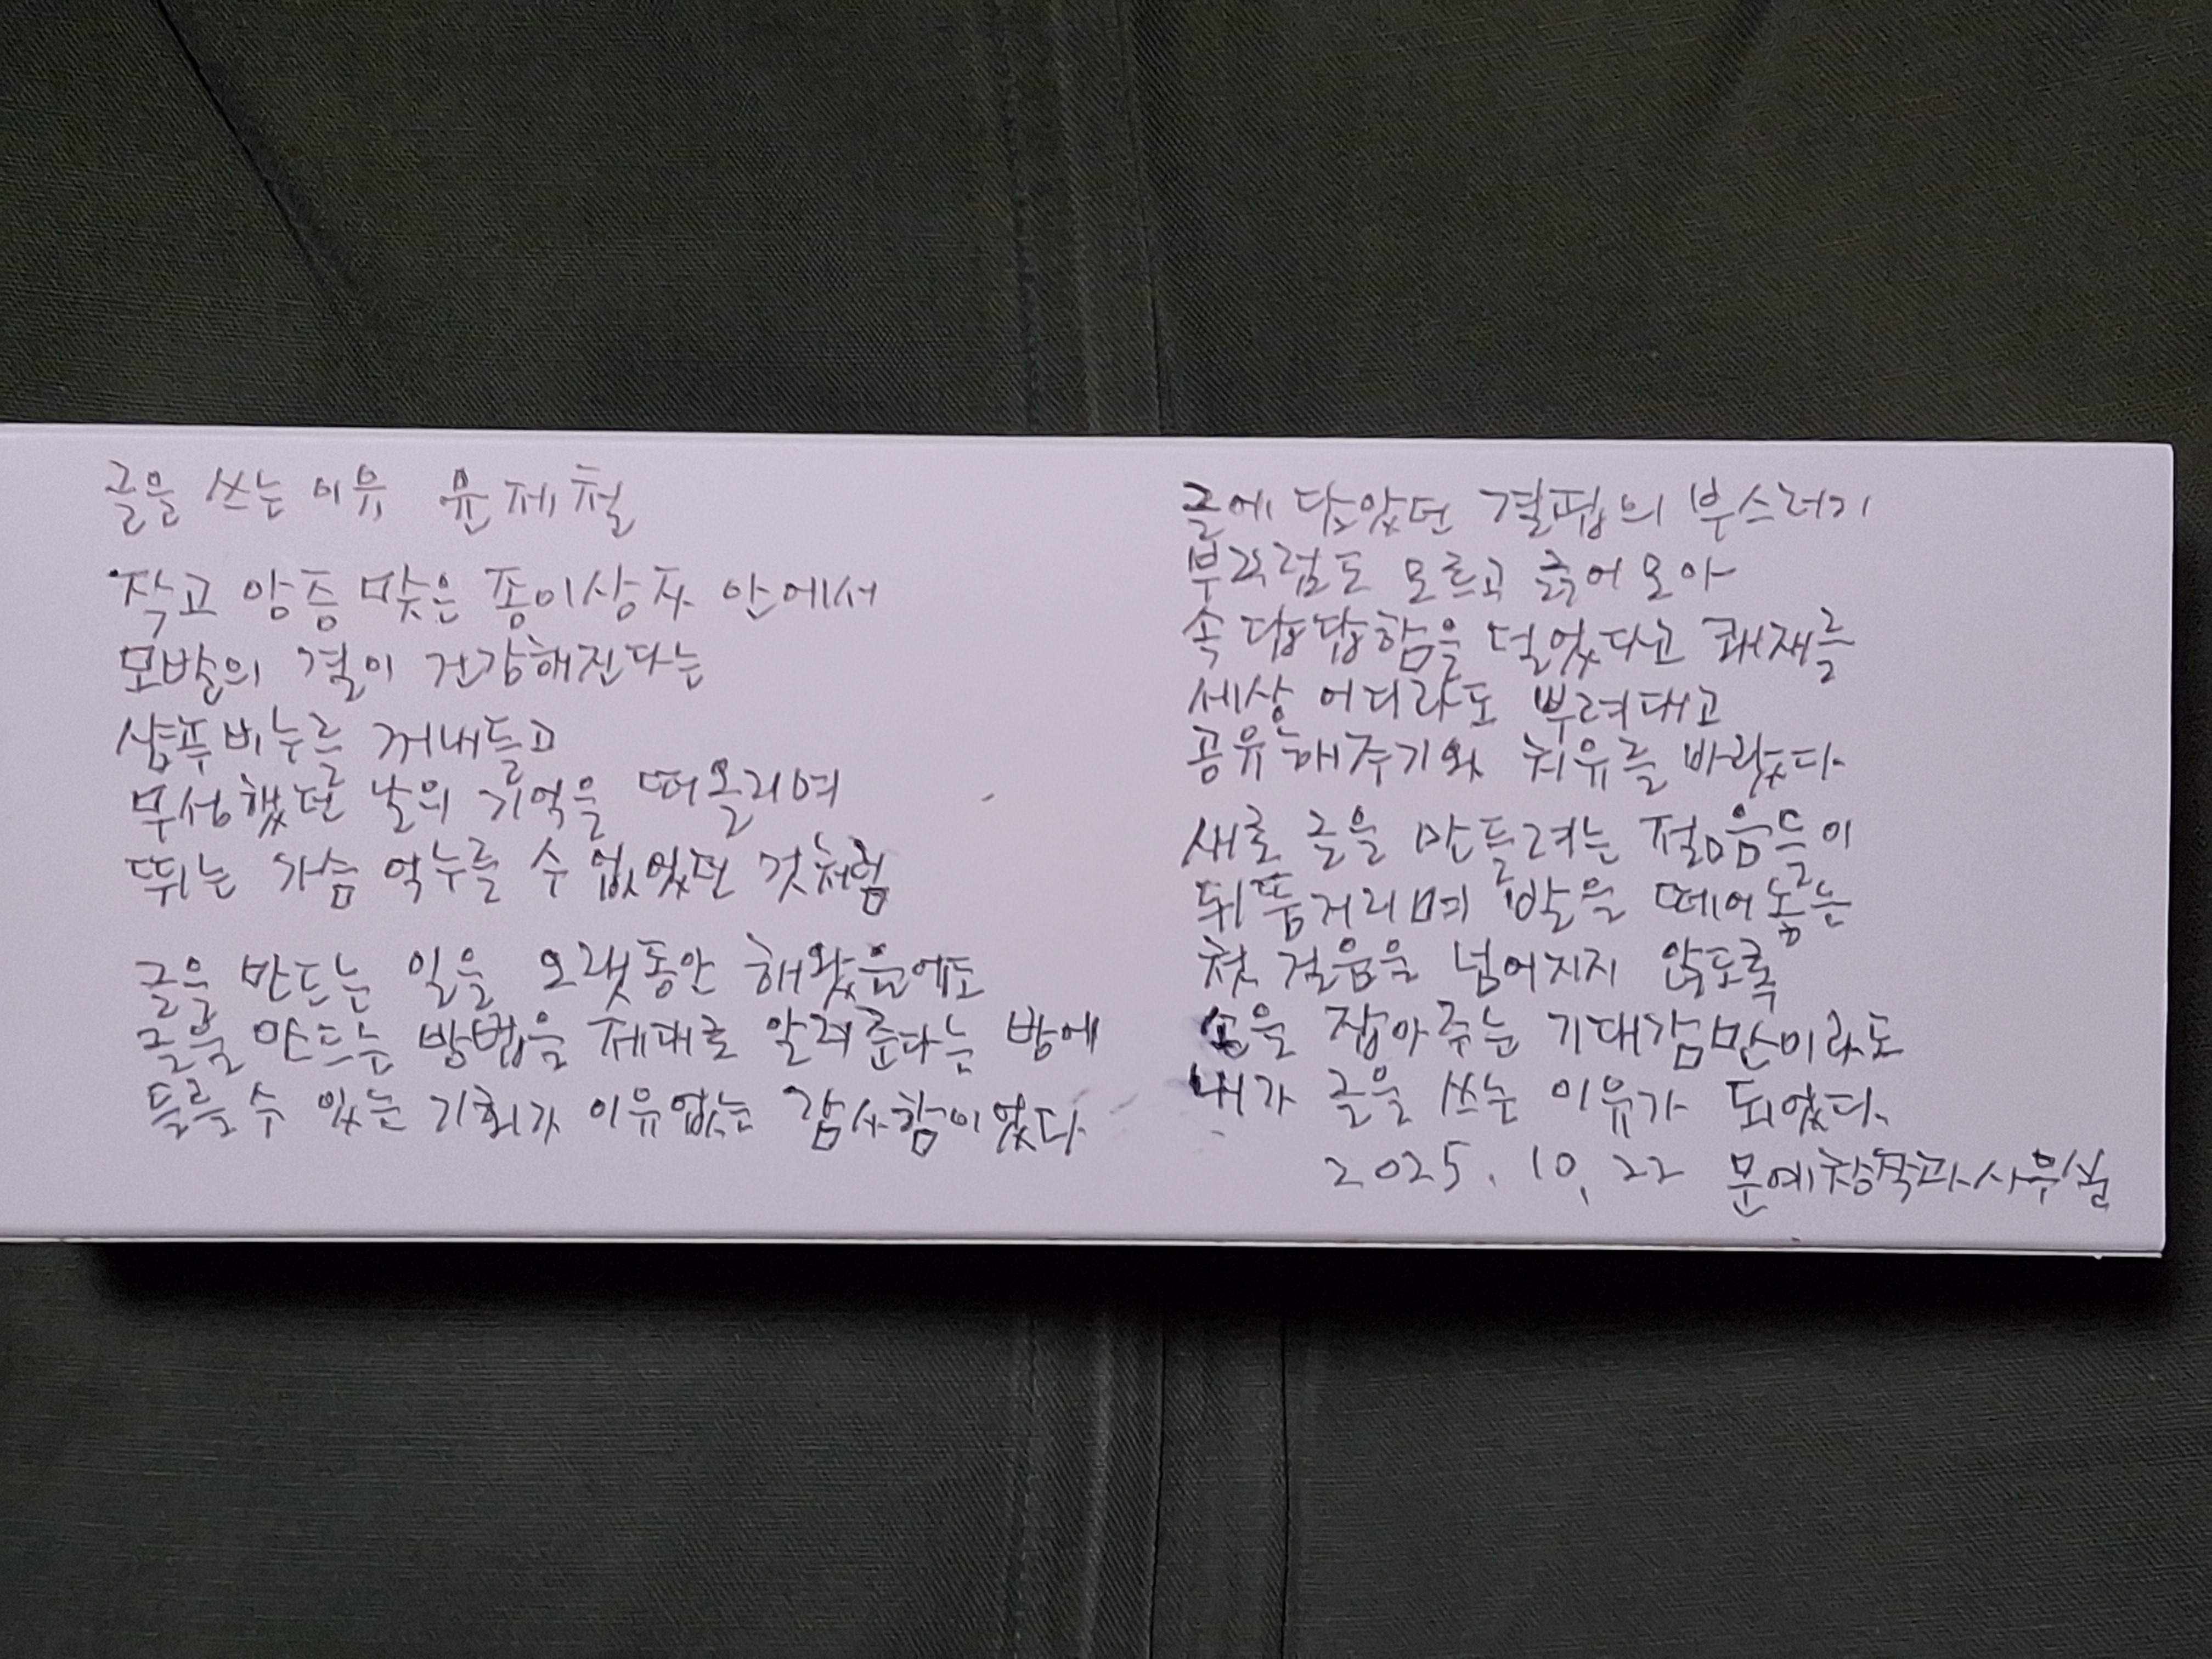 글을 쓰는 이유 윤제철
작고 앙증 맞은 종이상자 안에서
모발의 결이 건강해진다는
샴푸비누를 꺼내들고
무성했던 날의 기억을 떠올리며
뛰는 가슴 억누를 수 없었던 것처럼
글을 만드는 일을 오랫동안 해왔음에도
글을 만드는 방법을 제대로 알려준다는 방에
들를 수 있는 기회가 이유없는 감사함이었다
글에 담았던 결핍의 부스러기
부끄럼도 모르고 긁어모아
속 답답함을 덜었다고 쾌재를
세상 어디라도 뿌려대고
공유해주기와 치유를 바랐다.
새로 글을 만들려는 젊음들이
뒤뚱거리며 발을 떼어놓는
첫 걸음을 넘어지지 않도록
손을 잡아주는 기대감만이라도
내가 글을 쓰는 이유가 되었다.
2025. 10. 22 문예창작과사무실